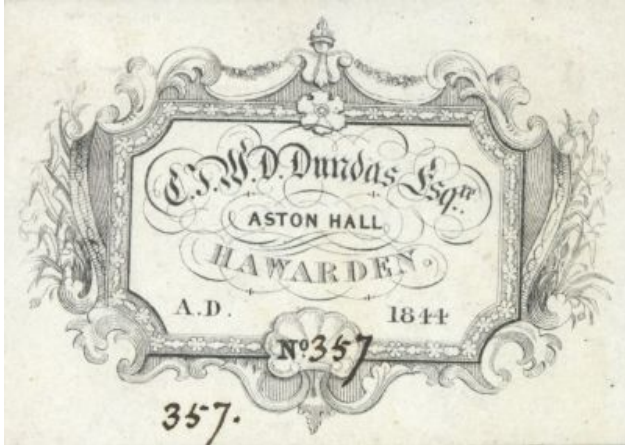 C.J.W.D. Dundas Esqre.
ASTON HALL
HAWARDEN.
A.D. 1844
No 357
357.